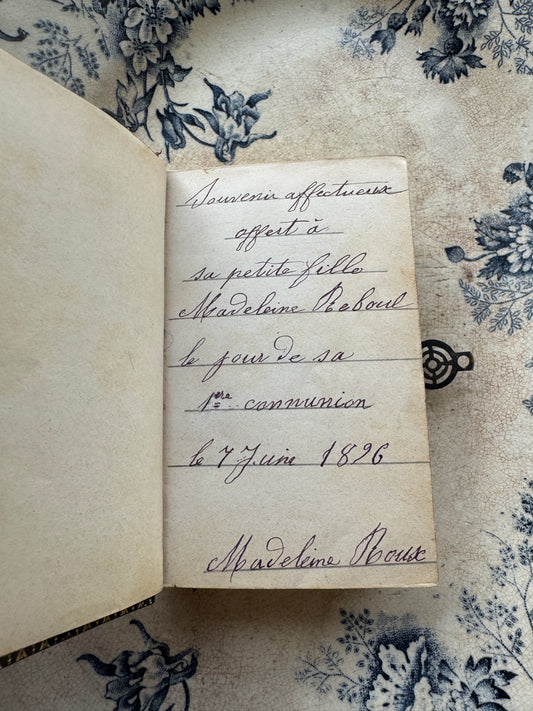 Souvenir affectueux
offert à
sa petite fille
Madeleine Reboul
le jour de sa
1ère communion
le 7 Juin 1896
Madeleine Roux